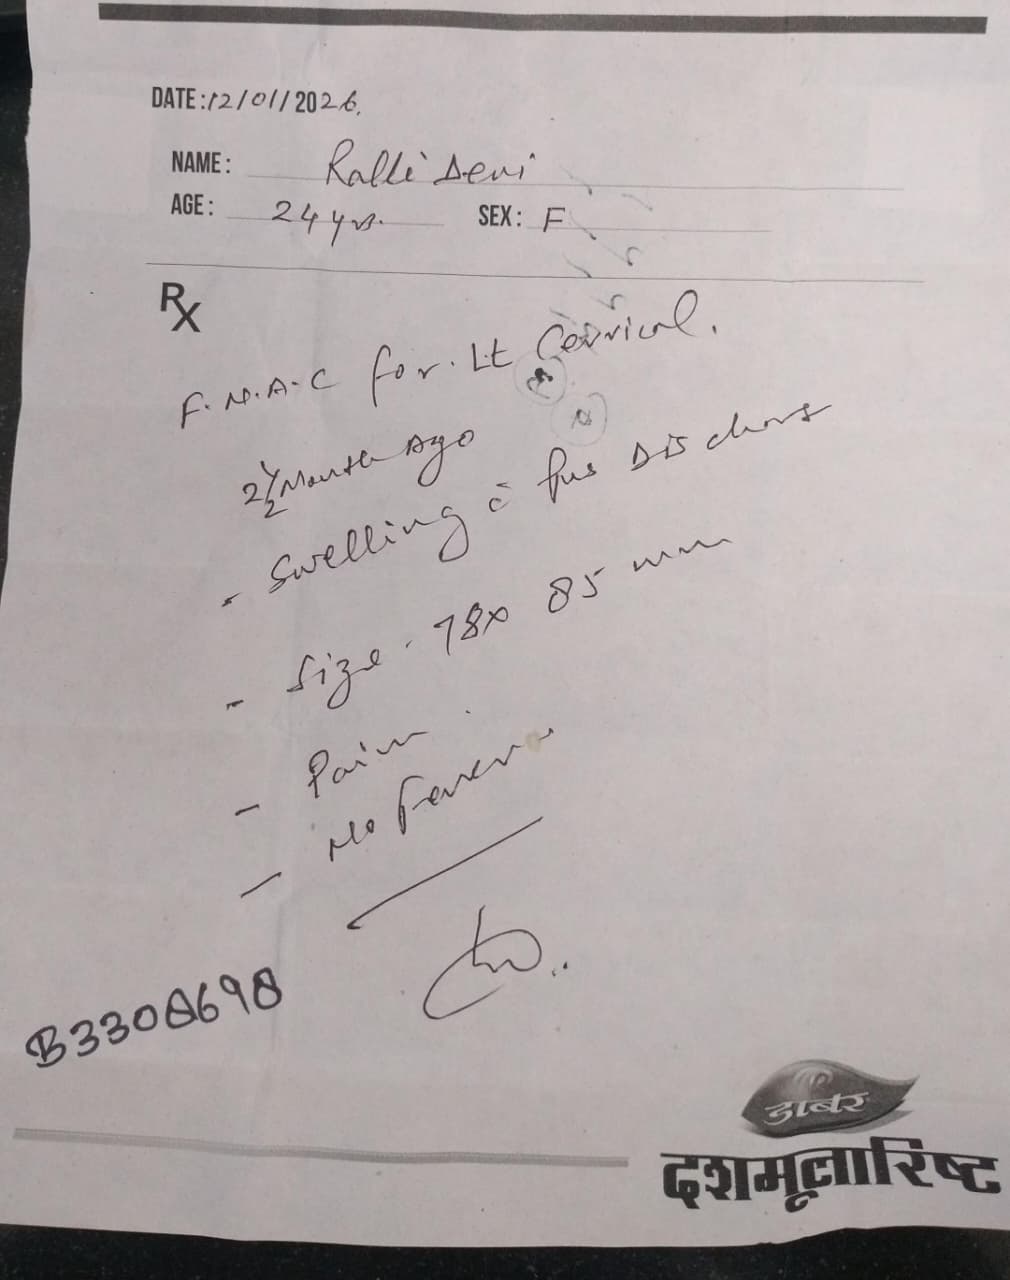 DATE: 12/01/2026.
NAME: Ralli Devi
AGE: 24 yrs. SEX: F
Rx
F.N.A.C for. Lt Cervical.
2 1/2 Month Ago
- Swelling c̄ Pus Discharg
- Size. 78 x 85 mm
- Pain
- No Fever
B3308698
डाबर
दशमूलारिष्ट